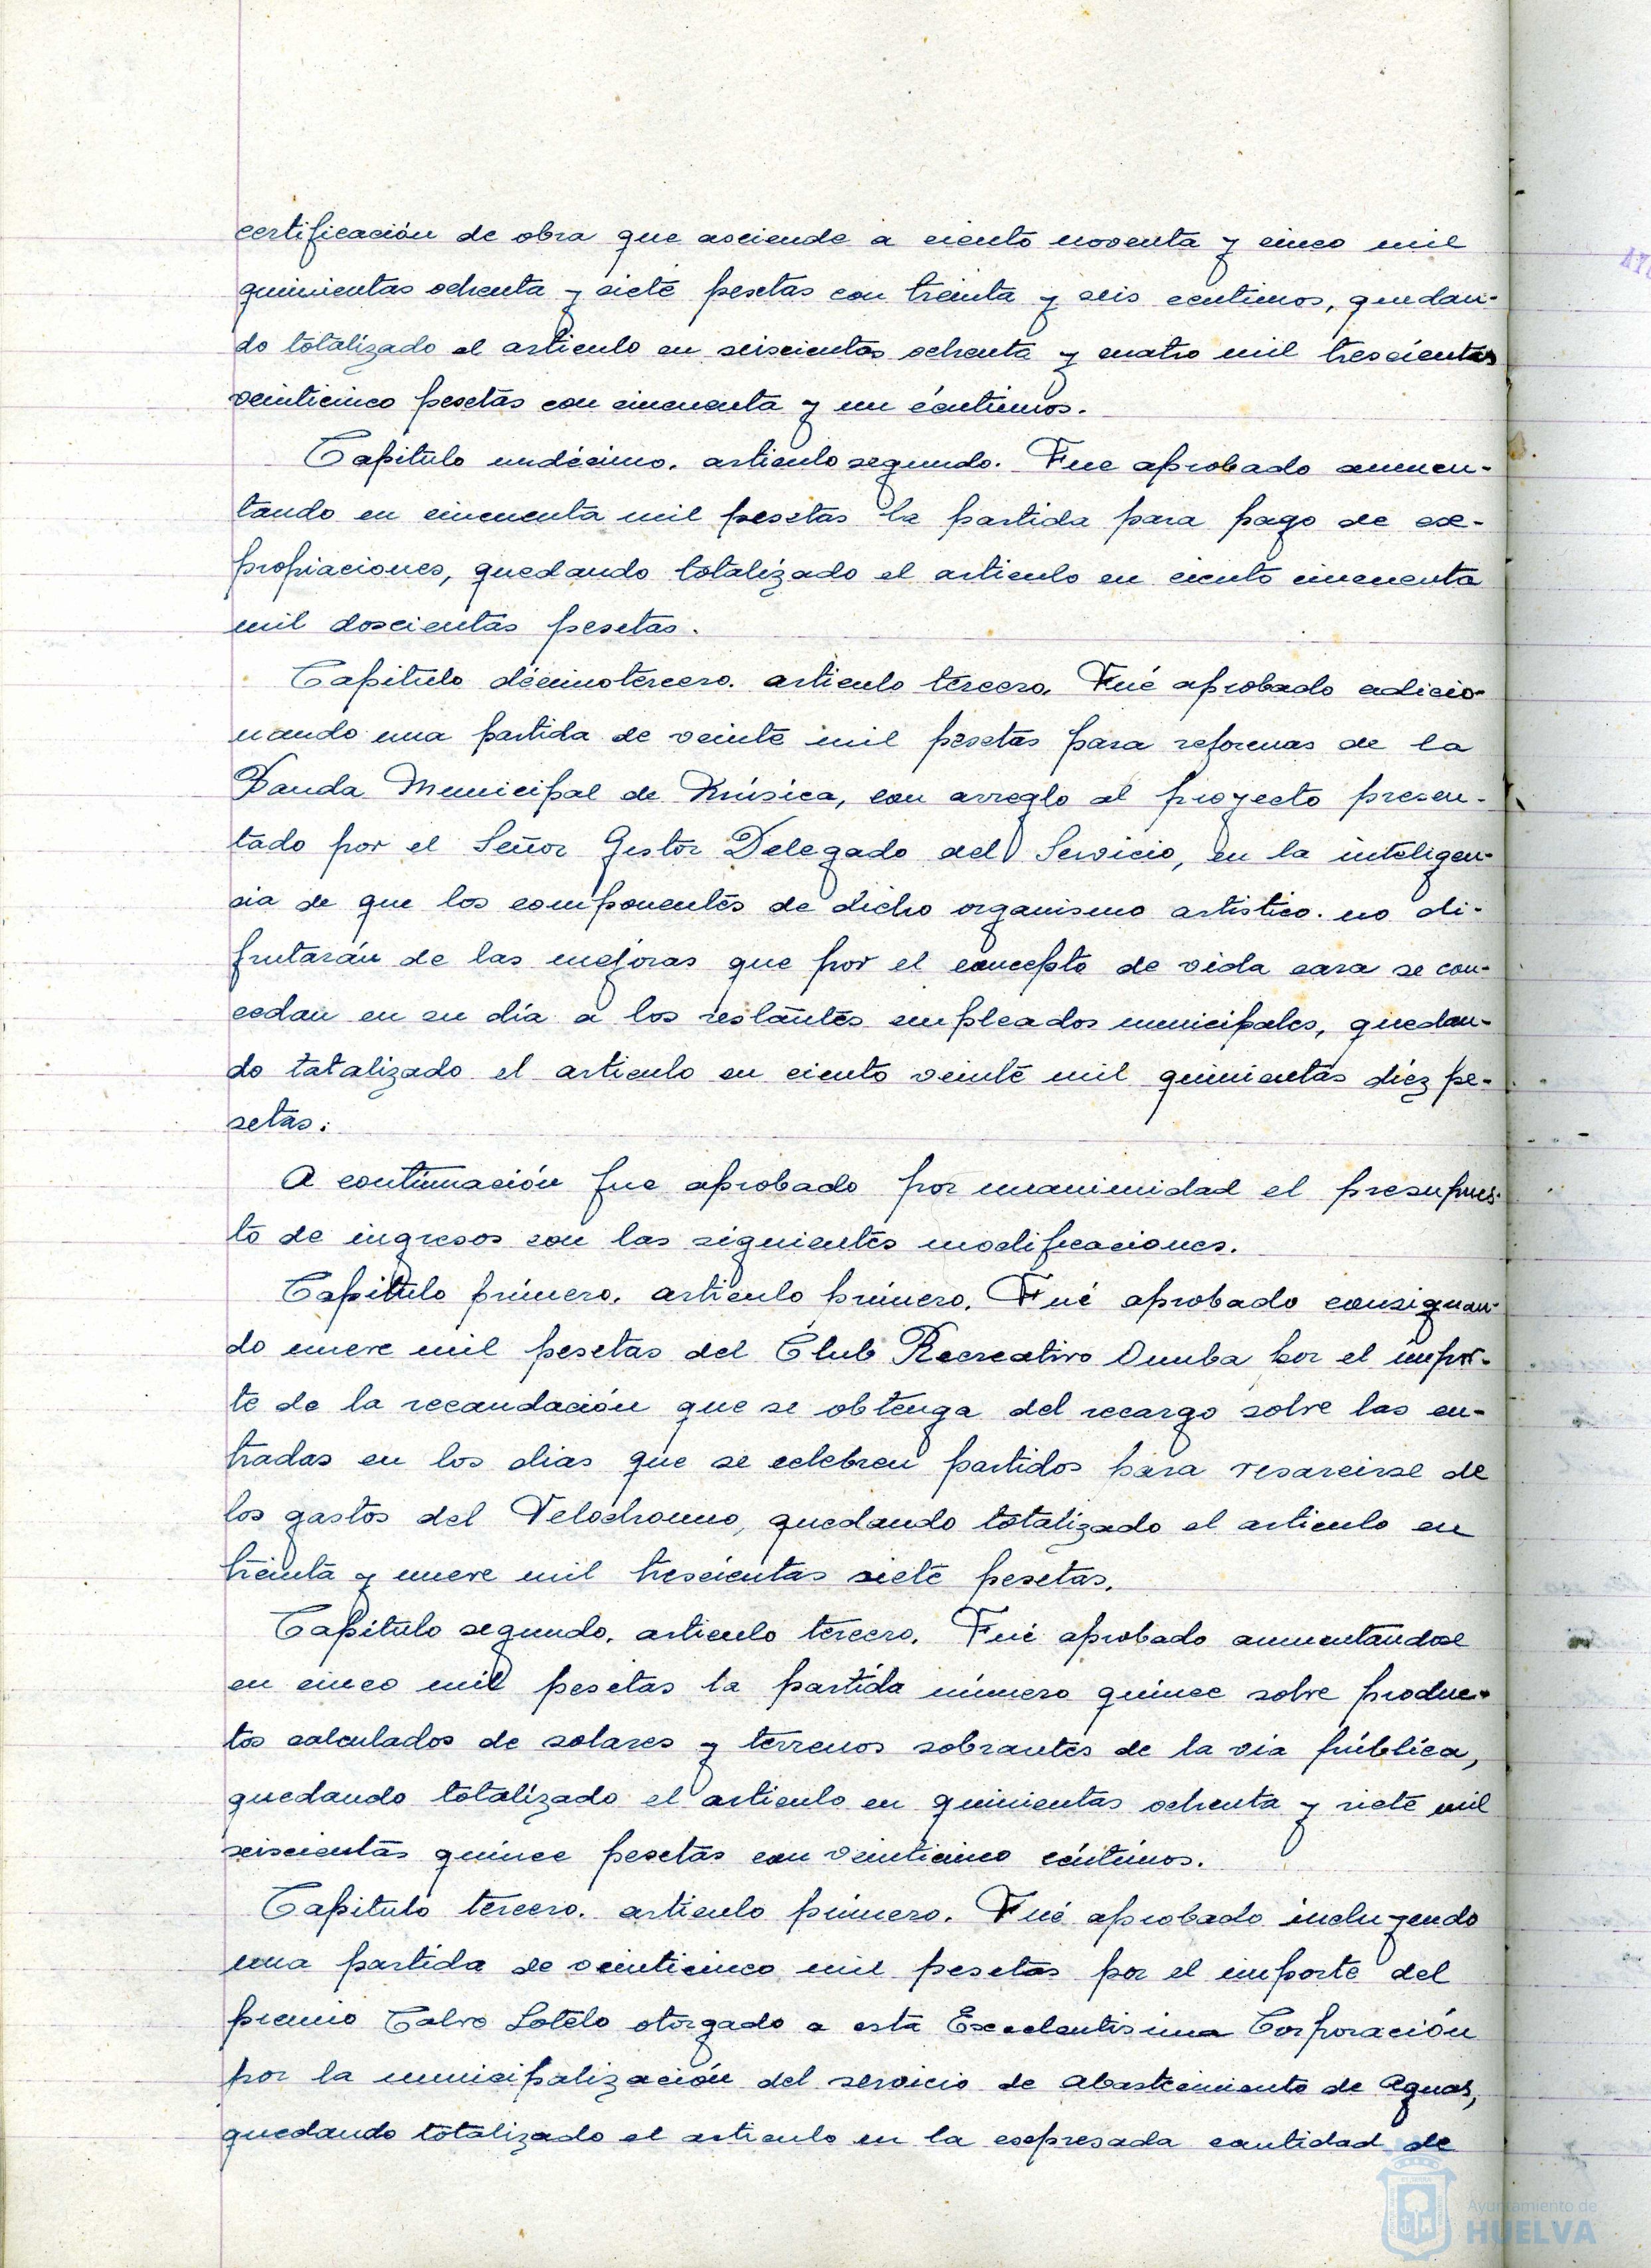 certificación de obra que asciende a ciento noventa y cinco mil
quinientas ochenta y siete pesetas con treinta y seis centimos, quedan-
do totalizado el articulo en seiscientas ochenta y cuatro mil trescientas
veinticinco pesetas con cincuenta y un céntimos.
Capitulo undécimo. articulo segundo. Fue aprobado aumen-
tando en cincuenta mil pesetas la partida para pago de ex-
propiaciones, quedando totalizado el articulo en ciento cincuenta
mil doscientas pesetas.
Capitulo décimotercero. articulo tercero. Fué aprobado adicio-
nando una partida de veinte mil pesetas para reformas de la
Banda Municipal de Música, con arreglo al proyecto presen-
tado por el Señor Gestor Delegado del Servicio, en la inteligen-
cia de que los componentes de dicho organismo artistico. no di-
frutarán de las mejoras que por el concepto de vida cara se con-
cedan en su día a los restantes empleados municipales, quedan-
do totalizado el articulo en ciento veinte mil quinientas diéz pe-
setas.
A continuación fue aprobado por unanimidad el presupues-
to de ingresos con las siguientes modificaciones.
Capitulo primero. articulo primero. Fué aprobado consignan-
do nueve mil pesetas del Club Recreativo Onuba por el impor-
te de la recaudación que se obtenga del recargo sobre las en-
tradas en los dias que se celebren partidos para resarcirse de
los gastos del Velodromo, quedando totalizado el articulo en
treinta y nueve mil trescientas siete pesetas.
Capitulo segundo. articulo tercero. Fué aprobado aumentandose
en cinco mil pesetas la partida número quince sobre produc-
tos calculados de solares y terrenos sobrantes de la via pública,
quedando totalizado el articulo en quinientas ochenta y siete mil
seiscientas quince pesetas con veinticinco céntimos.
Capitulo tercero. articulo primero. Fué aprobado incluyendo
una partida de veinticinco mil pesetas por el importe del
premio Calvo Sotelo otorgado a esta Excelentisima Corporación
por la municipalización del servicio de abastecimiento de Aguas,
quedando totalizado el articulo en la expresada cantidad de
Ayuntamiento de
HUELVA